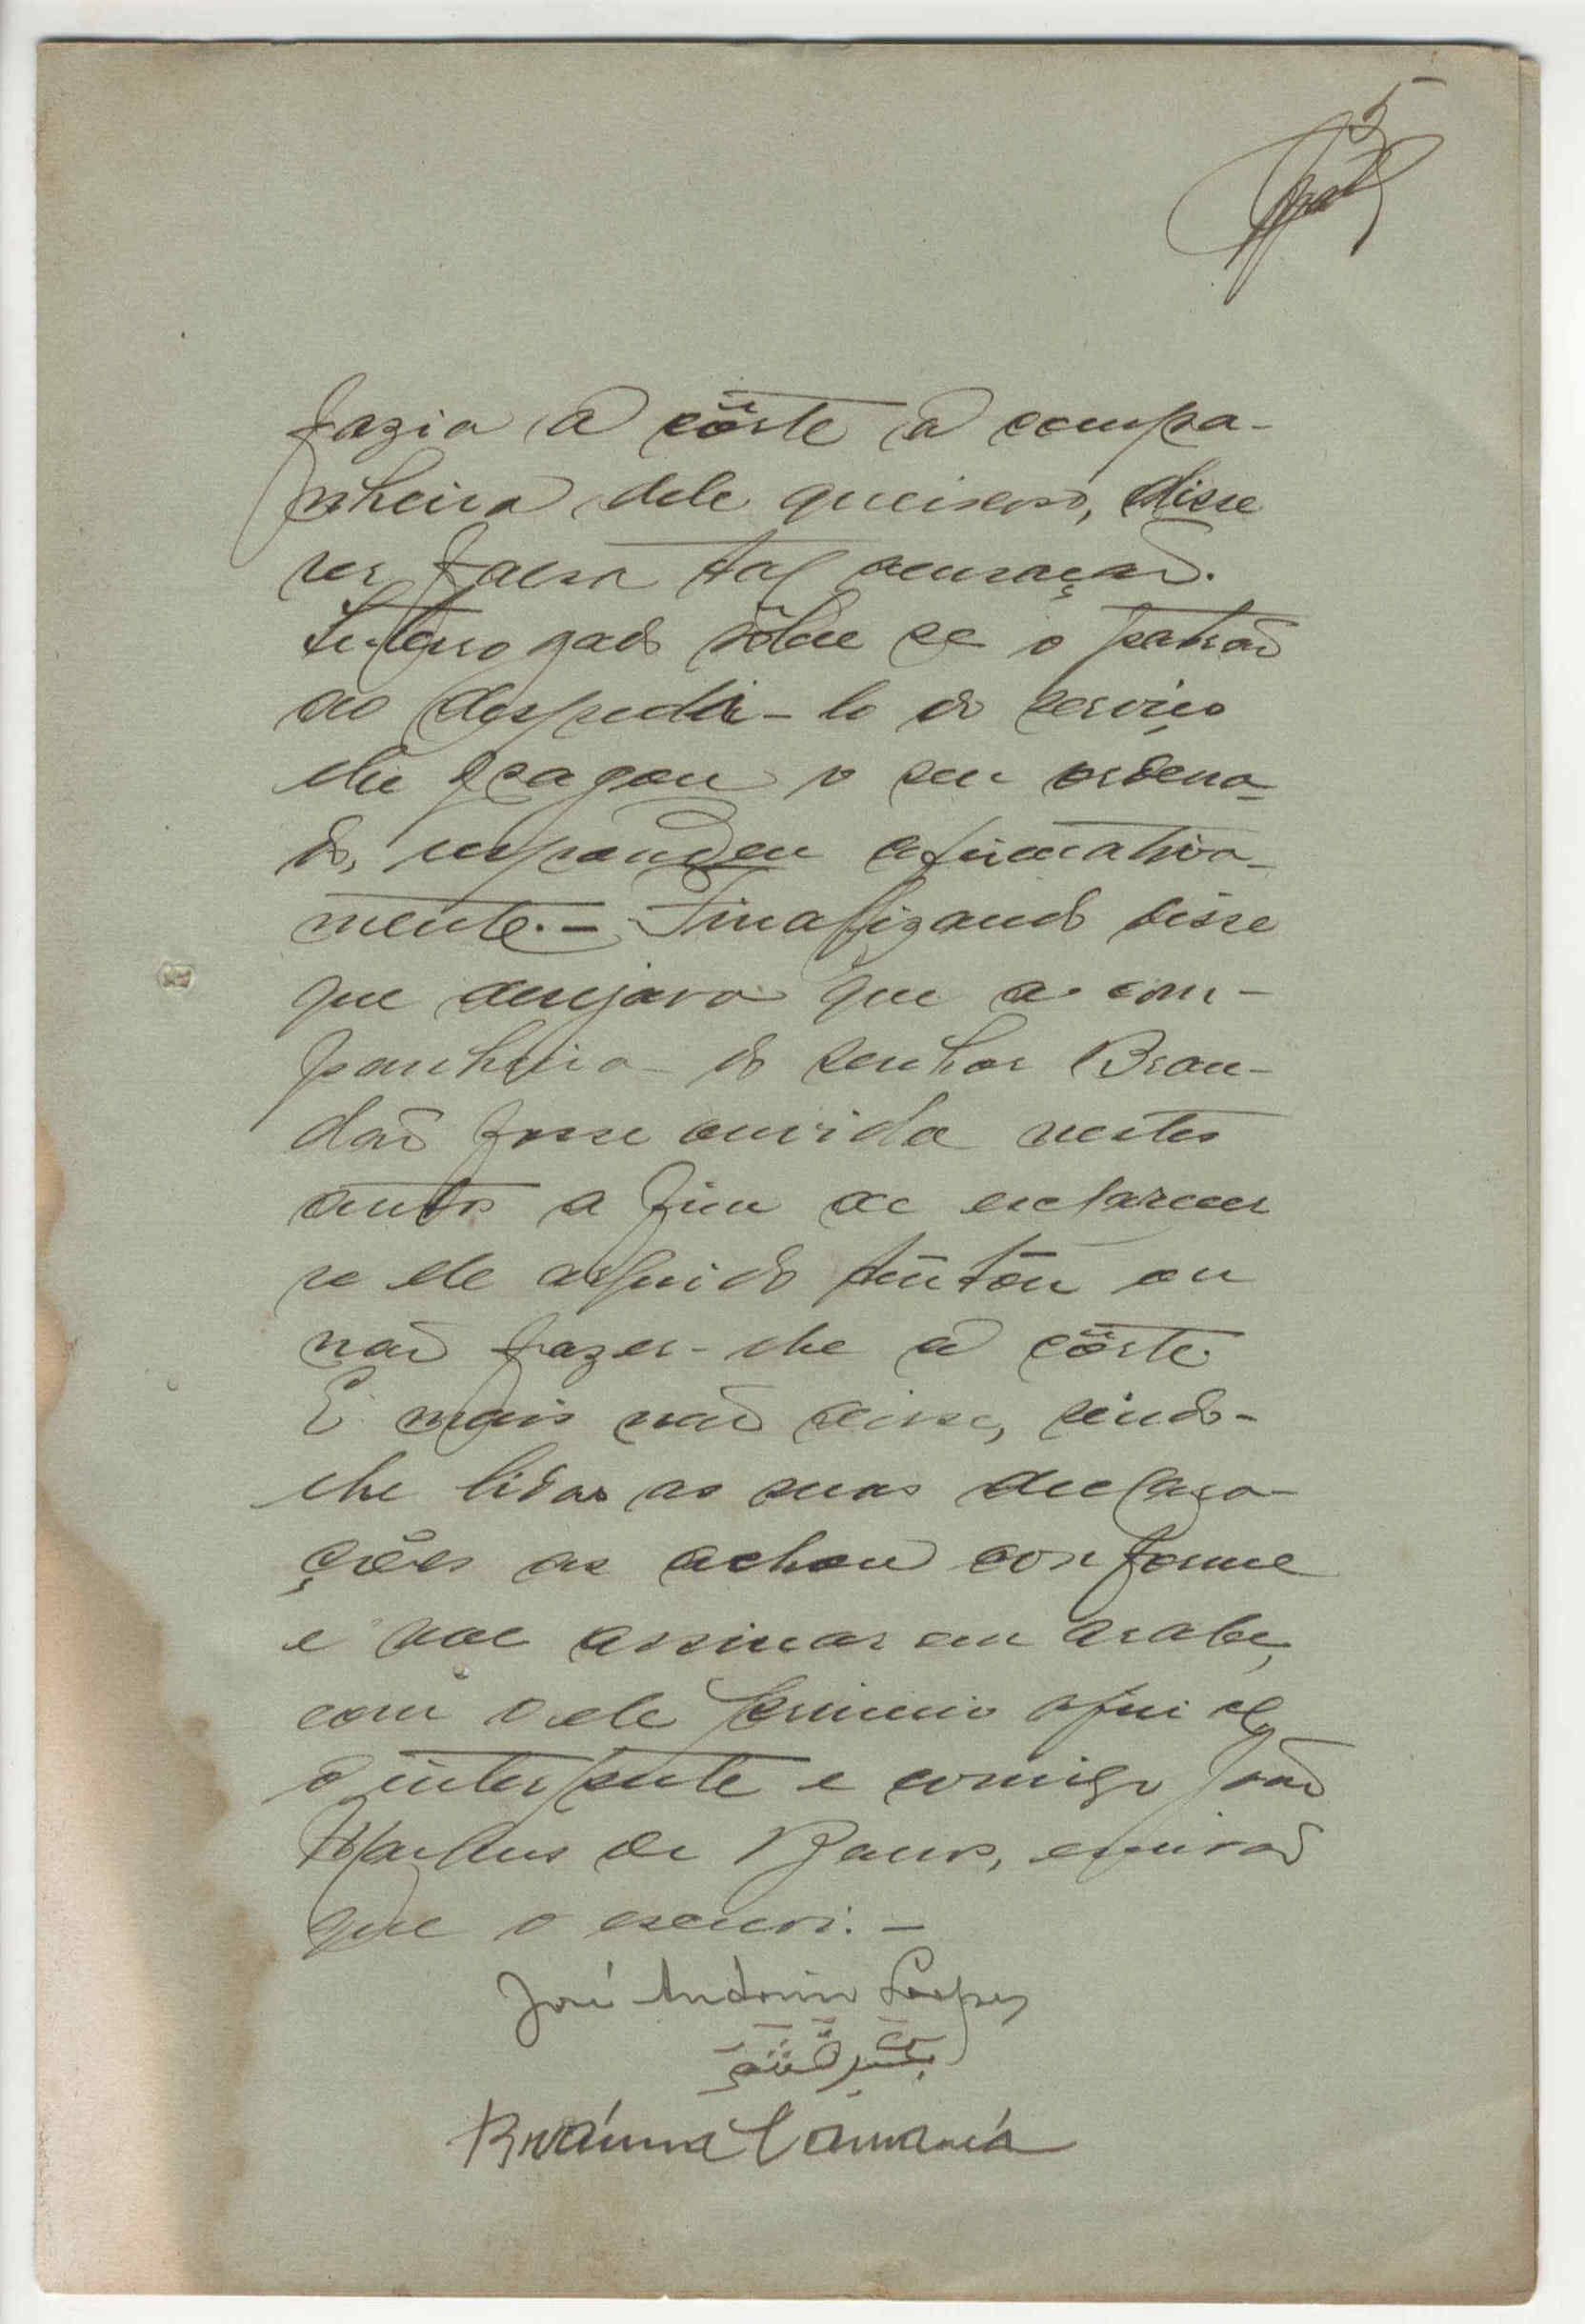 5
fazia a côrte a compa-
nheira dele queixoso, disse
ser falsa tal acusação.
Interrogado sôbre se o patrão
ao despedir-lo do serviço
lhe pagou o seu ordena-
do, respondeu afirmativa-
mente.- Finalizando disse
que desejava que a com-
panheira do senhor Bran-
dão fosse ouvida nestes
autos a fim de esclarecer
se ele arguido tentou ou
não fazer-lhe a côrte.
E mais não disse, sendo-
lhe lidas as suas declara-
ções as achou conforme
e vae assinar em arabe,
com o dele
o interprete e comigo João
Martins de Barros, escrivão
que o escrevi.-
José Antonio Lopes